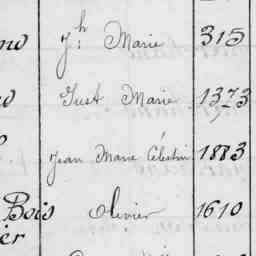 Jh Marie 315
Just Marie 1373
Jean Marie Célestin 1883
Bois Olivier 1610
ier